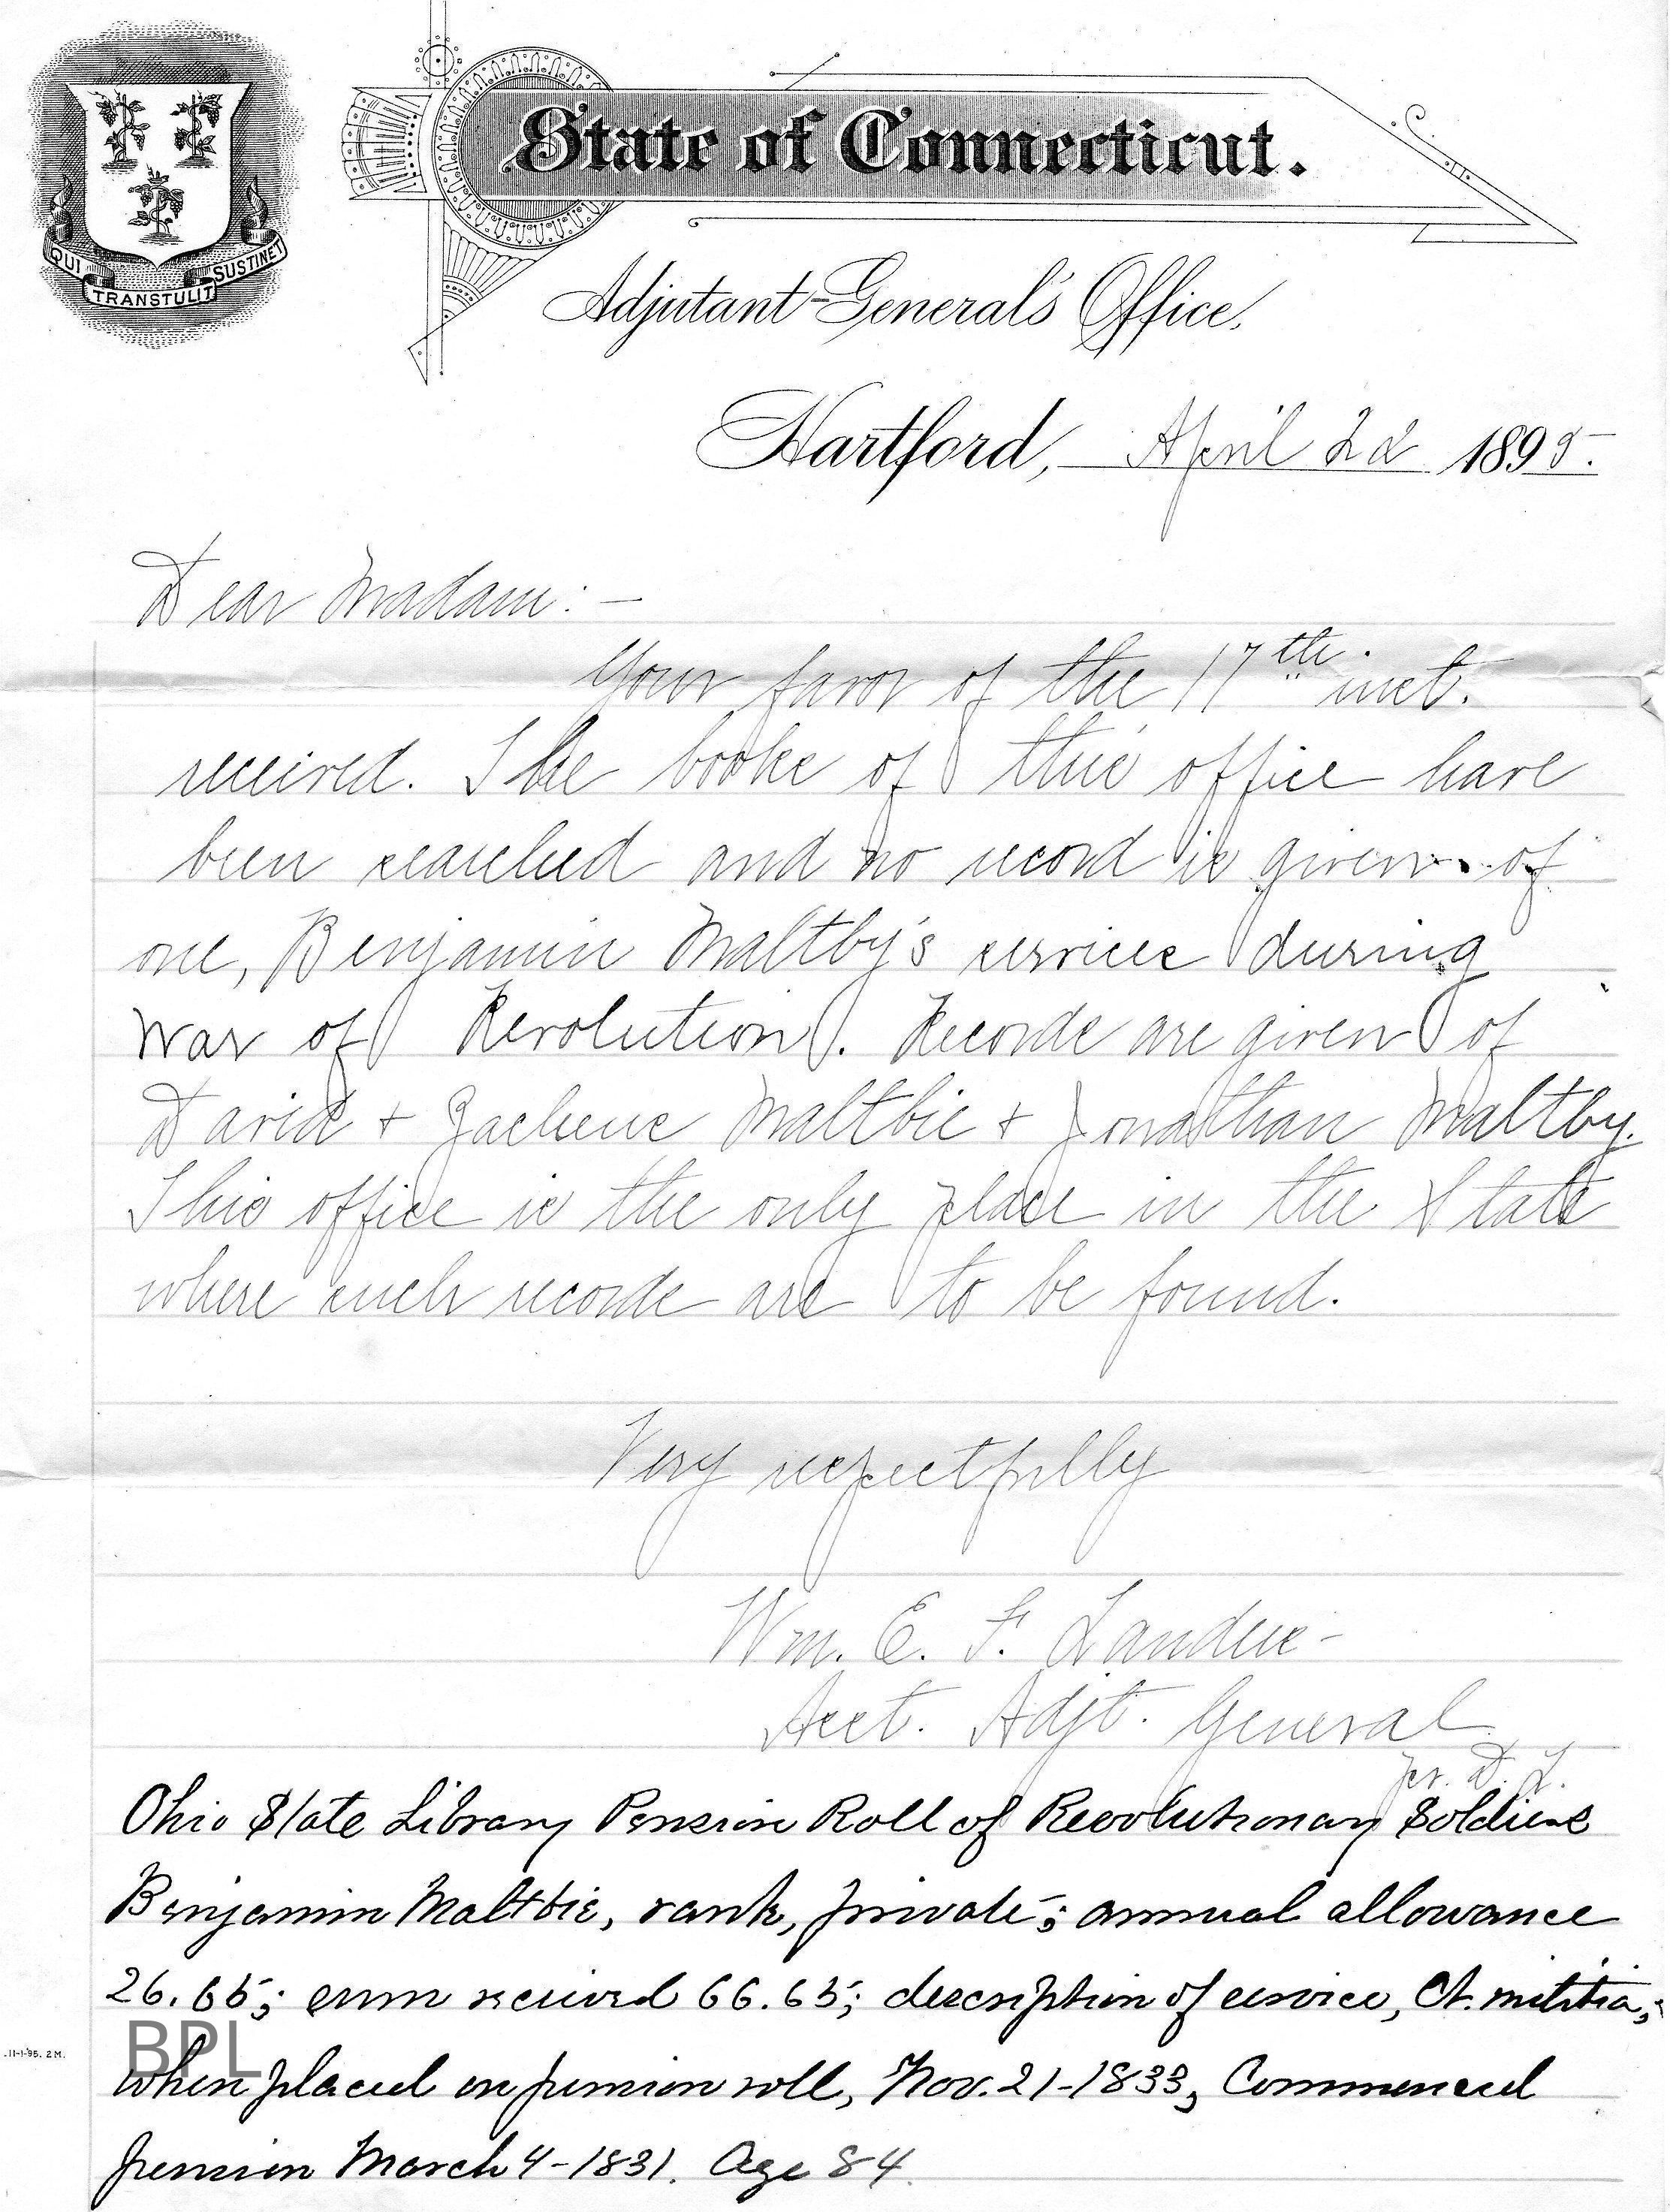 QUI TRANSTULIT SUSTINET
State of Connecticut.
Adjutant-General's Office.
Hartford, April 22 1895.
Dear Madam:-
Your favor of the 17th inst.
received. The books of this office have
been searched and no record is given of
one, Benjamin Maltby's services during
War of Revolution. Records are given of
David + Zacheus Maltbie + Jonathan Maltby.
This office is the only place in the State
where such records are to be found.
Very respectfully
Wm. E. F. Landers-
Asst. Adjt. General
per. D. L.
Ohio State Library Pension Roll of Revolutionary Soldiers
Benjamin Maltbie, rank, private; annual allowance
26.65; sum received 66.65; description of service, Ct. militia;
BPL
.11-1-95. 2 M.
when placed on pension roll, Nov. 21-1833, Commenced
pension March 4-1831. Age 84.